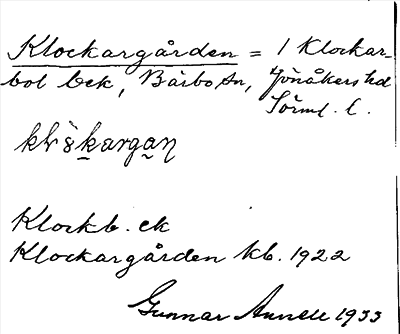 Klockargården = 1 Klockar-
bol bek, Bärbo sn, Jönåkers hd
Sörml. l.
Klockb. ek
Klockargården kb. 1922
Gunnar Annell 1933